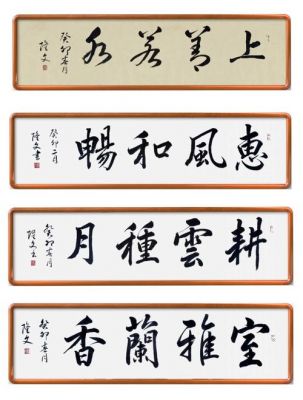 上善若水
癸卯春月
隆文
惠風和暢
癸卯二月
隆文書
耕雲種月
癸卯春月
隆文書
室雅蘭香
癸卯春月
隆文